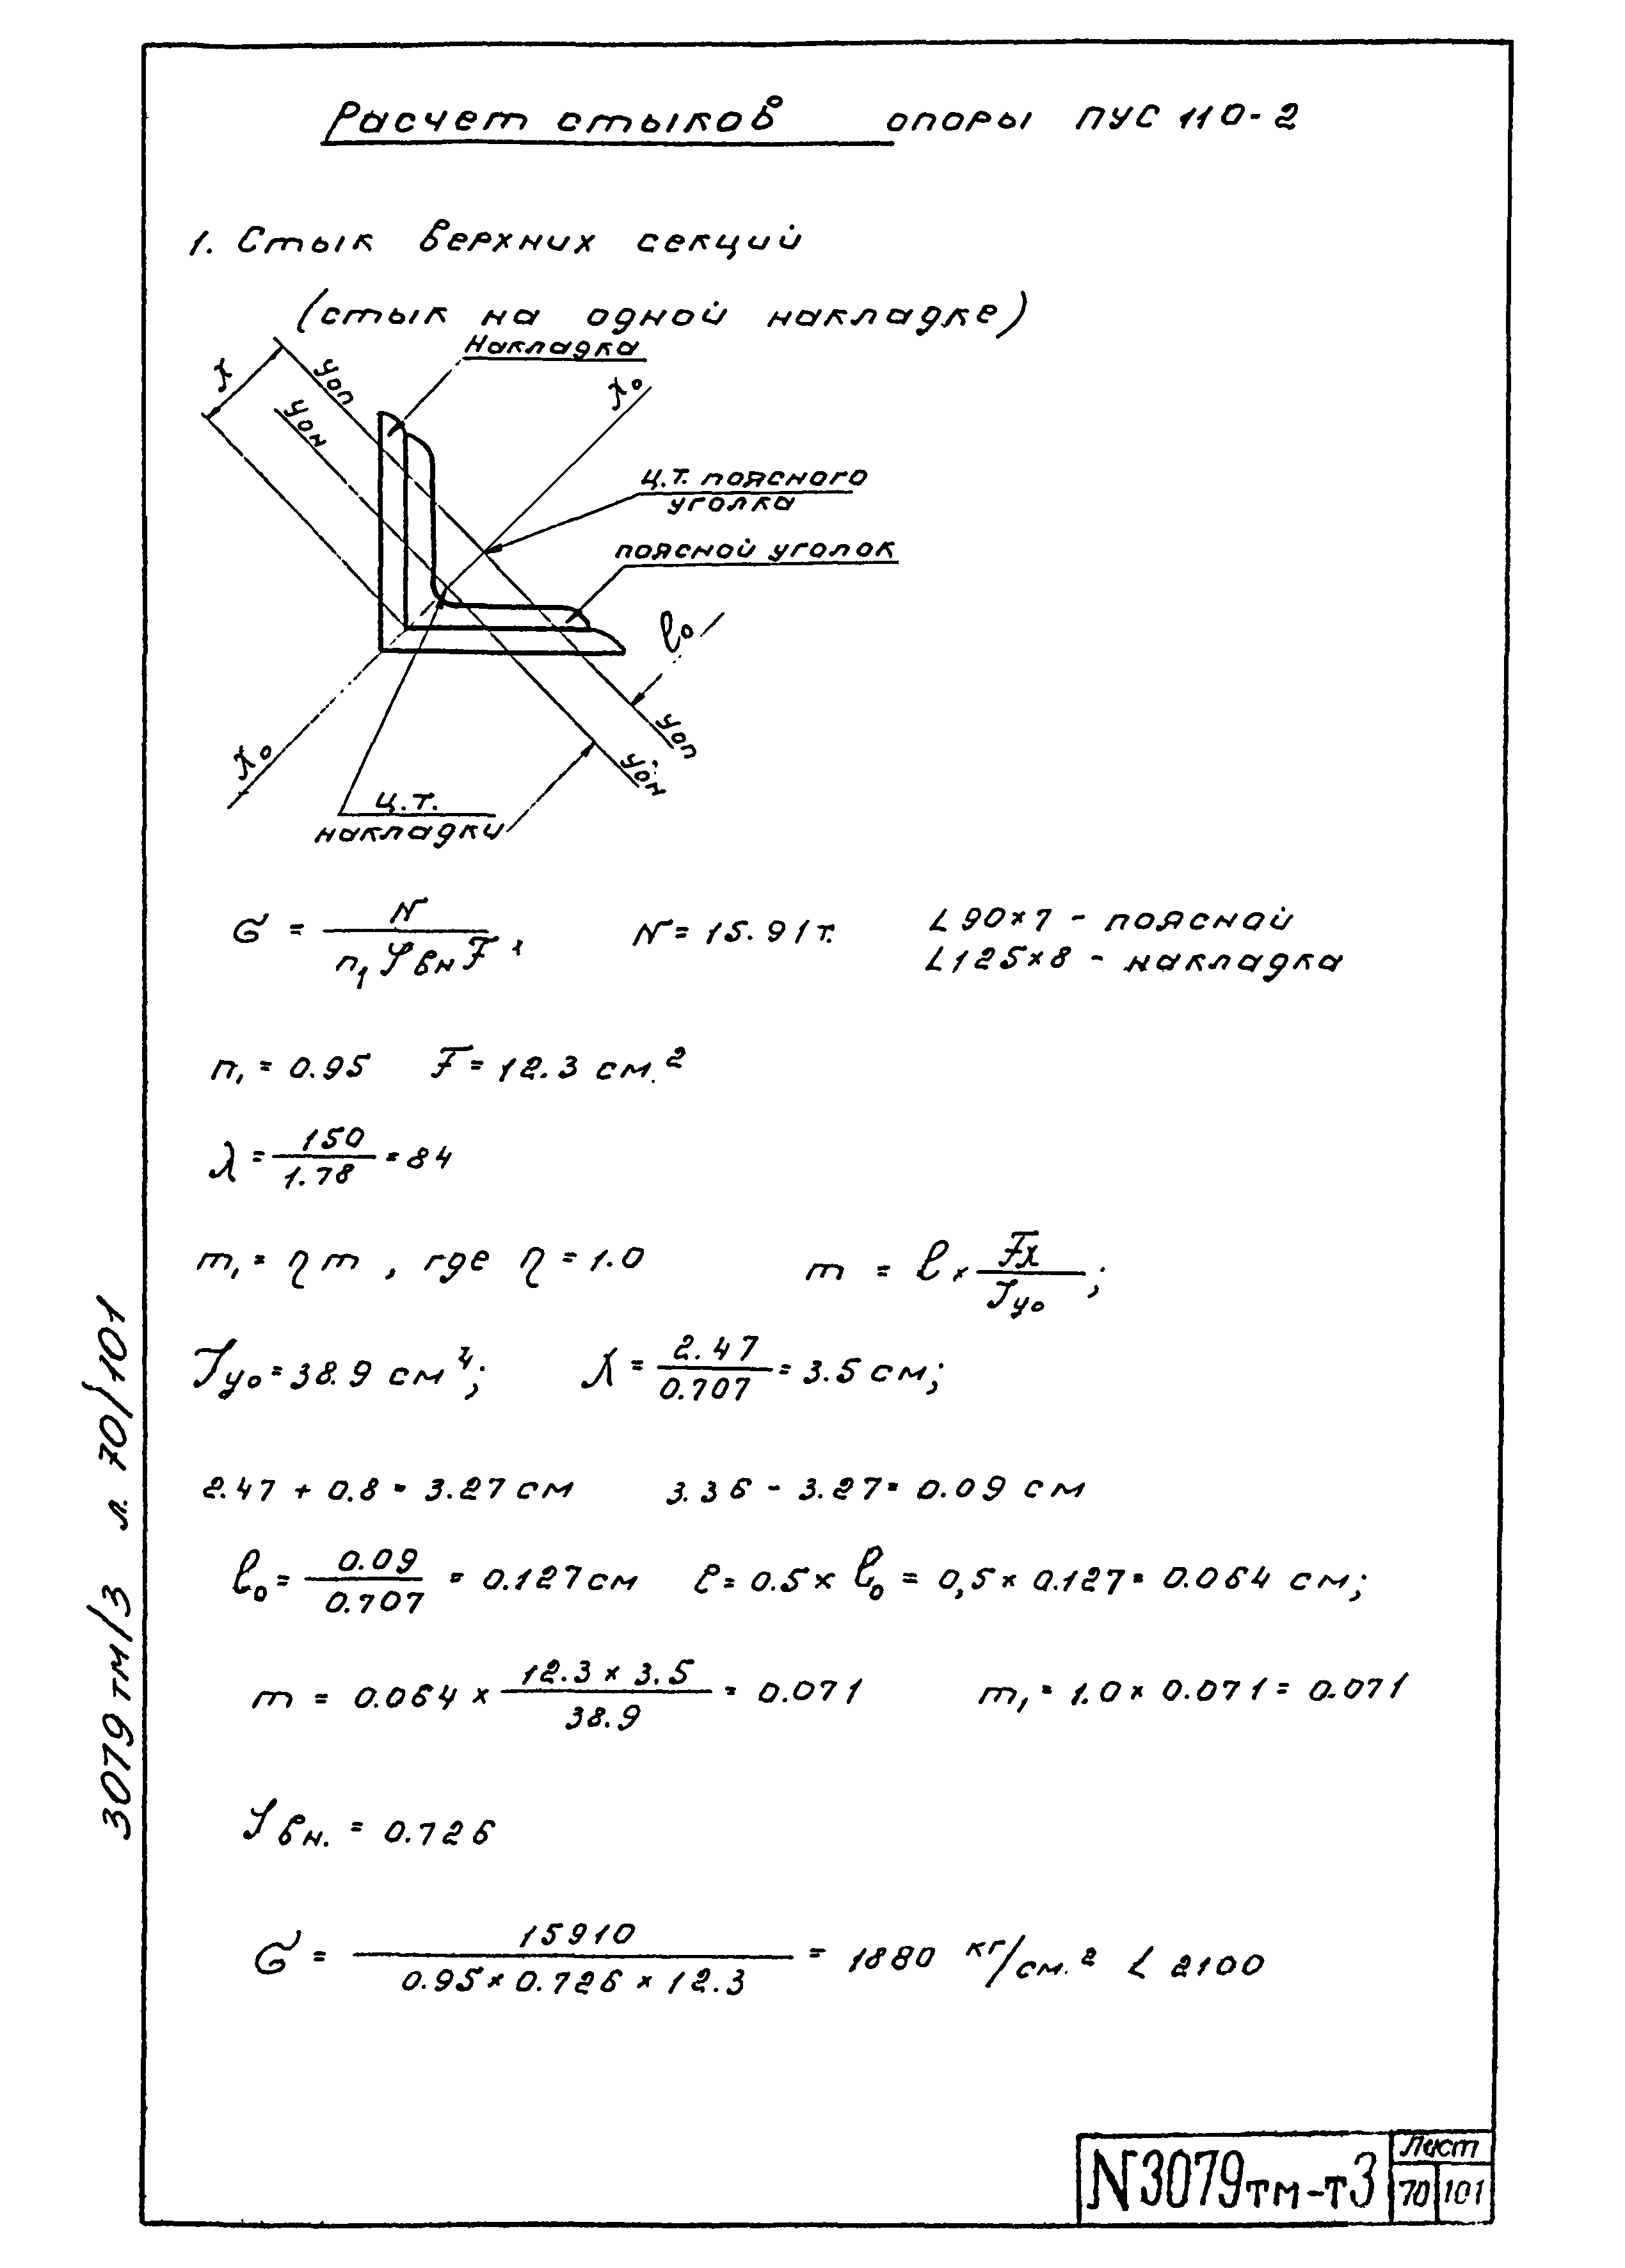 Расчет стыков опоры ПУС 110-2
1. Стык верхних секций
(стык на одной накладке)
Накладка
x
Yоп
Yон
X₀
ц.т. поясного
уголка
поясной уголок
l₀
Yоп
Yон
X₀
ц.т.
накладки
σ = N / (n₁ φвн F), N = 15.91 т. L 90×7 - поясной
L 125×8 - накладка
n₁ = 0.95 F = 12.3 см.²
λ = 150 / 1.78 = 84
m₁ = η m , где η = 1.0 m = l × Fx / Jy₀ ;
Jy₀ = 38.9 см⁴; x = 2.47 / 0.707 = 3.5 см;
2.47 + 0.8 = 3.27 см 3.36 - 3.27 = 0.09 см
l₀ = 0.09 / 0.707 = 0.127 см l = 0.5 × l₀ = 0,5 × 0.127 = 0.064 см;
m = 0.064 × 12.3 × 3.5 / 38.9 = 0.071 m₁ = 1.0 × 0.071 = 0.071
φвн. = 0.726
σ = 15910 / (0.95 × 0.726 × 12.3) = 1880 кг/см.² < 2100
3079тм/3 л. 70/101
N3079тм-т3
Лист
70 101